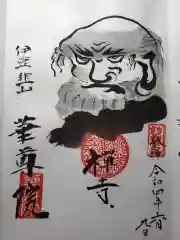 令和四年六月
九日
禅寺
伊豆韮山
華尊院